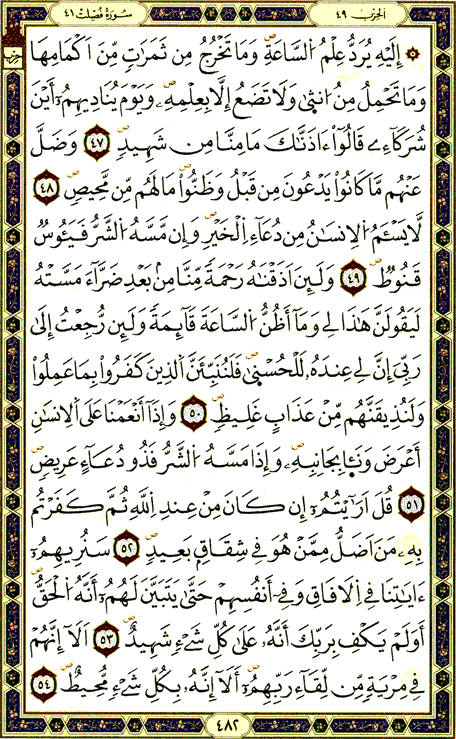 الحزب ٤٩
سورة فصلت ٤١
حزب
۞ إِلَيْهِ يُرَدُّ عِلْمُ اُلسَّاعَةِۖ وَمَا تَخْرُجُ مِن ثَمَرَٰتٖ مِّنَ اَكْمَامِهَا
وَمَا تَحْمِلُ مِنُ ا۟نث۪يٰ وَلَا تَضَعُ إِلَّا بِعِلْمِهِۦۖ وَيَوْمَ يُنَادِيهِمُۥٓ أَيْنَ
شُرَكَآءِے قَالُوٓاْ ءَاذَنَّٰكَ مَا مِنَّا مِن شَهِيدٖۖ ٤٧ وَضَلَّ
عَنْهُم مَّا كَانُواْ يَدْعُونَ مِن قَبْلُ وَظَنُّواْ مَا لَهُم مِّن مَّحِيصٖۖ ٤٨
لَّا يَسْـَٔمُ اُلِانسَٰنُ مِن دُعَآءِ اِلْخَيْرِۖ وَإِن مَّسَّهُ اُلشَّرُّ فَيَـُٔوسٞ
قَنُوطٞۖ ٤٩ وَلَئِنَ اَذَقْنَٰهُ رَحْمَةٗ مِّنَّا مِنۢ بَعْدِ ضَرَّآءَ مَسَّتْهُ
لَيَقُولَنَّ هَٰذَا لِے وَمَآ أَظُنُّ اُلسَّاعَةَ قَآئِمَةٗ وَلَئِن رُّجِعْتُ إِلَىٰ
رَبِّيَ إِنَّ لِے عِندَهُۥ لَلْحُسْن۪يٰۖ فَلَنُنَبِّئَنَّ اَلذِينَ كَفَرُواْ بِمَا عَمِلُواْ
وَلَنُذِيقَنَّهُم مِّنْ عَذَابٍ غَلِيظٖۖ ٥٠ وَإِذَآ أَنْعَمْنَا عَلَى اَلِانسَٰنِ
أَعْرَضَ وَنَـ۪ٔا بِجَانِبِهِۦ وَإِذَا مَسَّهُ اُلشَّرُّ فَذُو دُعَآءٍ عَرِيضٖۖ
٥١ قُلَ اَرَٰٓيْتُمُۥٓ إِن كَانَ مِنْ عِندِ اِللَّهِ ثُمَّ كَفَرْتُم
بِهِۦ مَنَ اَضَلُّ مِمَّنْ هُوَ فِے شِقَاقِۢ بَعِيدٖۖ ٥٢ سَنُرِيهِمُۥٓ
ءَايَٰتِنَا فِے اِلَافَاقِ وَفِےٓ أَنفُسِهِمْ حَتَّىٰ يَتَبَيَّنَ لَهُمُۥٓ أَنَّهُ اُلْحَقُّۖ
أَوَلَمْ يَكْفِ بِرَبِّكَ أَنَّهُۥ عَلَىٰ كُلِّ شَےْءٖ شَهِيدٌۖ ٥٣ اَلَآ إِنَّهُمْ
فِے مِرْيَةٖ مِّن لِّقَآءِ رَبِّهِمُۥٓۖ أَلَآ إِنَّهُۥ بِكُلِّ شَےْءٖ مُّحِيطٌۖ ٥٤
٤٨٢